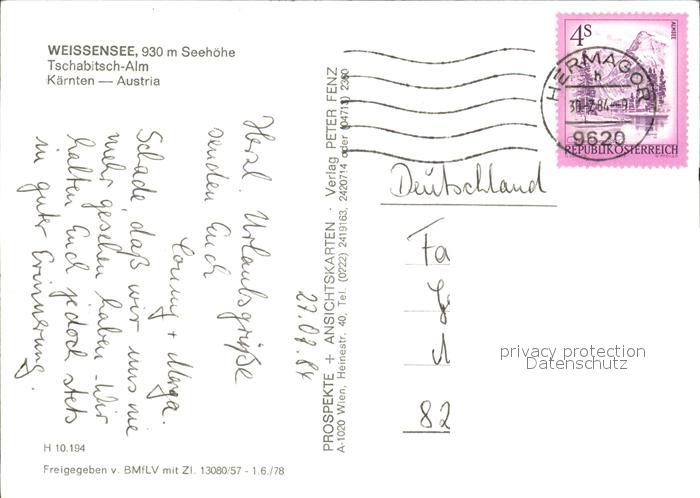 WEISSENSEE, 930 m Seehöhe
Tschabitsch-Alm
Kärnten — Austria
Herzl. Urlaubsgrüße
senden Euch
Conny +
Schade, daß wir uns nie
mehr gesehen haben. Wir
halten Euch jedoch stets
in guter Erinnerung.
27.07.84
H 10.194
Freigegeben v. BMfLV mit Zl. 13080/57 - 1.6./78
PROSPEKTE + ANSICHTSKARTEN · Verlag PETER FENZ
A-1020 Wien, Heinestr. 40, Tel. (0222) 2419163, 2420714 oder (04713) 2360
4S
ALMSEE
REPUBLIK ÖSTERREICH
HERMAGOR
h
30.-7.84--9
9620
Deutschland
Fa
82
privacy protection
Datenschutz